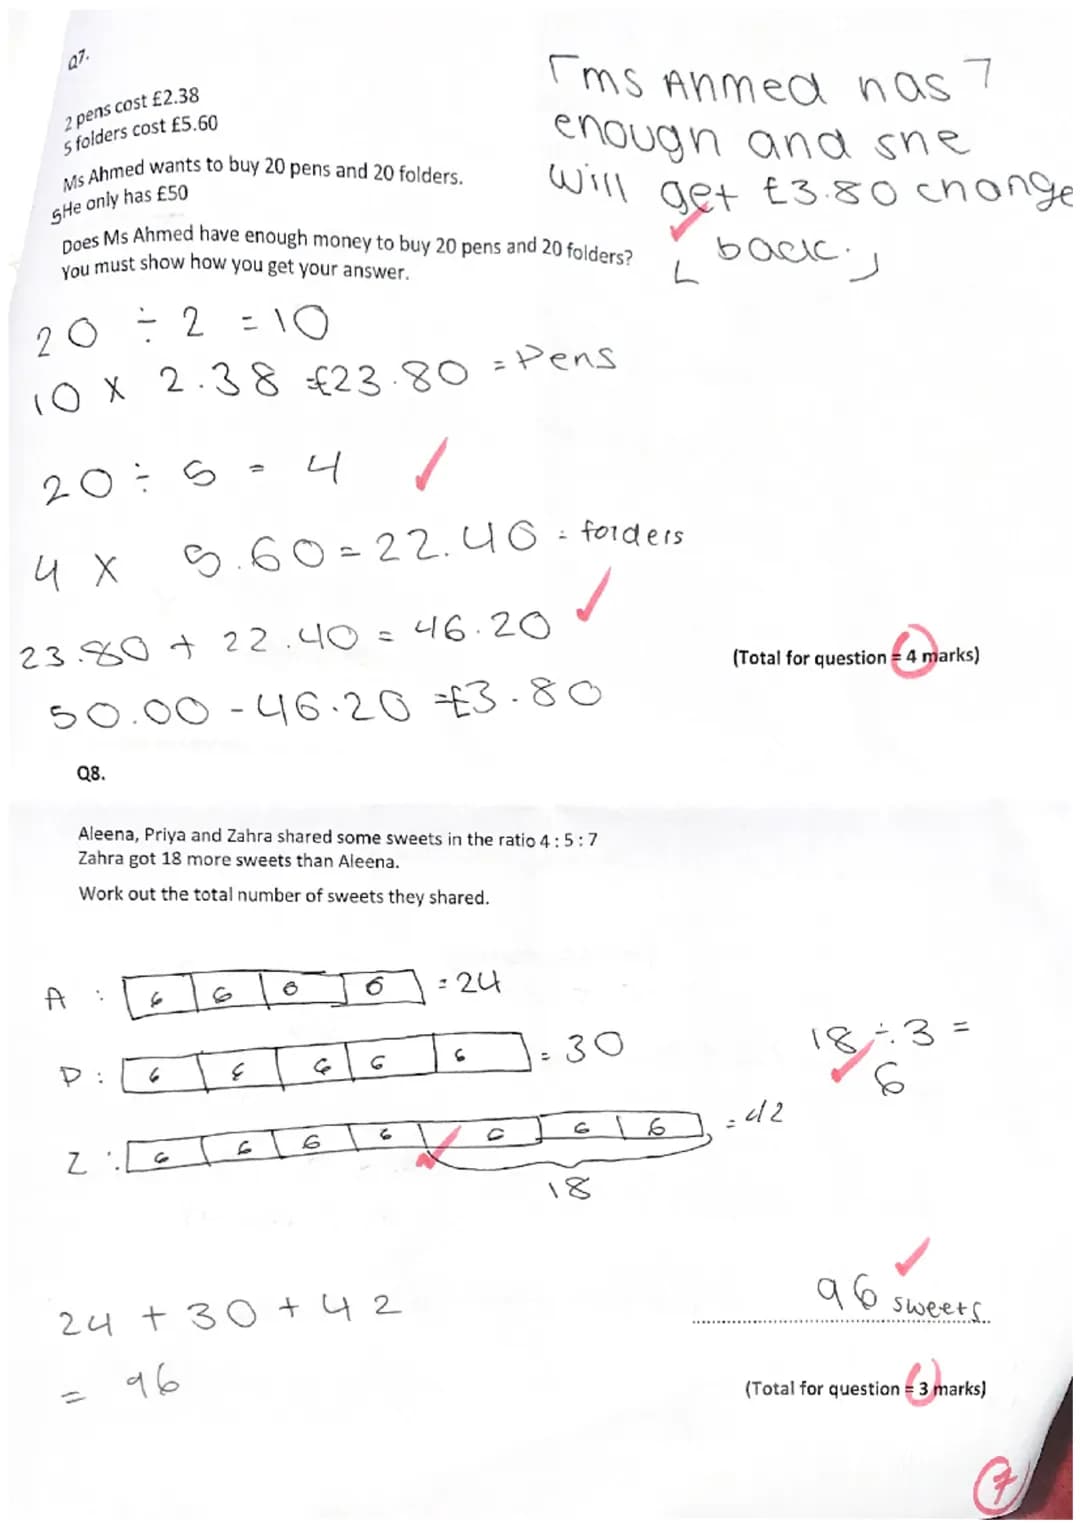 Q7.
2 pens cost £2.38
5 folders cost £5.60
Ms Ahmed wants to buy 20 pens and 20 folders.
SHe only has £50
Does Ms Ahmed have enough money to buy 20 pens and 20 folders?
You must show how you get your answer.
ms Ahmed has
enough and she
will get £3.80 change
back.
20 ÷ 2 = 10
10 x 2.38 =£23.80 = Pens
20 ÷ 5 = 4
4 x 5.60 = 22.40 = folders
23.80 + 22.40 = 46.20
50.00 - 46.20 =£3.80
(Total for question = 4 marks)
Q8.
Aleena, Priya and Zahra shared some sweets in the ratio 4 : 5 : 7
Zahra got 18 more sweets than Aleena.
Work out the total number of sweets they shared.
A : 6 6 6 6 = 24
P : 6 6 6 6 6 = 30
18 ÷ 3 =
6
Z : 6 6 6 6 6 6 6 = 42
18
24 + 30 + 42
= 96
96 sweets
(Total for question = 3 marks)
7